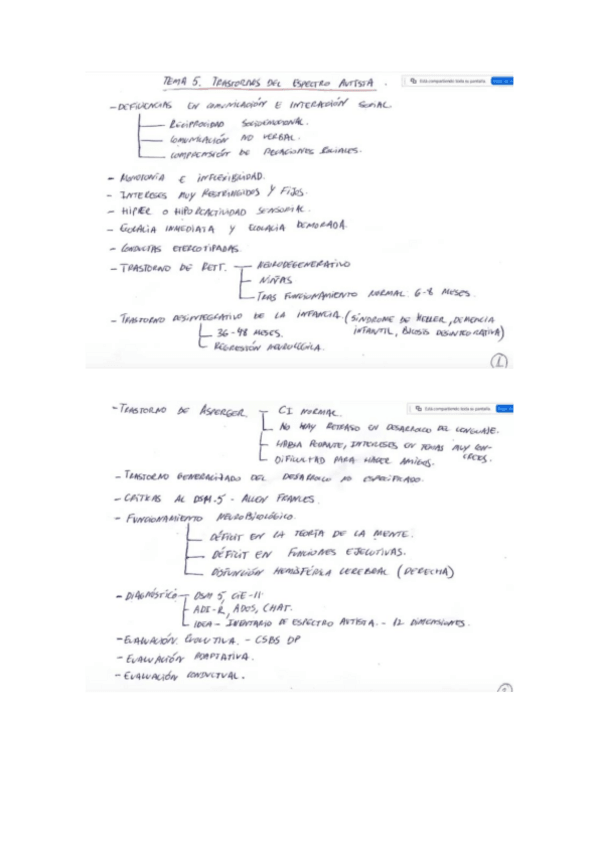 TEMA 5. TRASTORNOS DEL ESPECTRO AUTISTA.
Está compartiendo toda su pantalla.
- DEFICIENCIAS EN COMUNICACIÓN E INTERACCIÓN SOCIAL
RECIPROCIDAD SOCIOEMOCIONAL.
COMUNICACIÓN NO VERBAL.
COMPRENSIÓN DE RELACIONES SOCIALES.
- MONOTONÍA E INFLEXIBILIDAD.
- INTERESES MUY RESTRINGIDOS Y FIJOS.
- HIPER O HIPOREACTIVIDAD SENSORIAL.
- ECOLALIA INMEDIATA Y ECOLALIA DEMORADA.
- CONDUCTAS ETEREOTIPADAS.
- TRASTORNO DE RETT. NEURODEGENERATIVO
- NIÑAS
TRAS FUNCIONAMIENTO NORMAL 6-8 MESES.
- TRASTORNO DESINTEGRATIVO DE LA INFANCIA. (SÍNDROME DE HELLER, DEMENCIA
36-48 MESES. INFANTIL, PSICOSIS DESINTEGRATIVA)
REGRESIÓN NEUROLÓGICA.
1
- TRASTORNO DE ASPERGER CI NORMAL
Está compartiendo toda su pantalla.
NO HAY RETRASO EN DESARROLLO DEL LENGUAJE.
HABLA PEDANTE, INTERESES EN TEMAS MUY CON-
CRETOS.
DIFICULTAD PARA HACER AMIGOS.
- TRASTORNO GENERALIZADO DEL DESARROLLO NO ESPECIFICADO.
- CRÍTICAS AL DSM.5 - ALLEN FRANCES.
- FUNCIONAMIENTO NEUROPSICOLÓGICO.
DÉFICIT EN LA TEORÍA DE LA MENTE.
DÉFICIT EN FUNCIONES EJECUTIVAS.
DISFUNCIÓN HEMISFÉRICA CEREBRAL (DERECHA)
- DIAGNÓSTICO DSM 5, CIE-11
ADI-R, ADOS, CHAT.
IDEA - INVENTARIO DE ESPECTRO AUTISTA. - 12 DIMENSIONES.
- EVALUACIÓN EVOLUTIVA. - CSBS DP
- EVALUACIÓN ADAPTATIVA.
- EVALUACIÓN CONDUCTUAL.